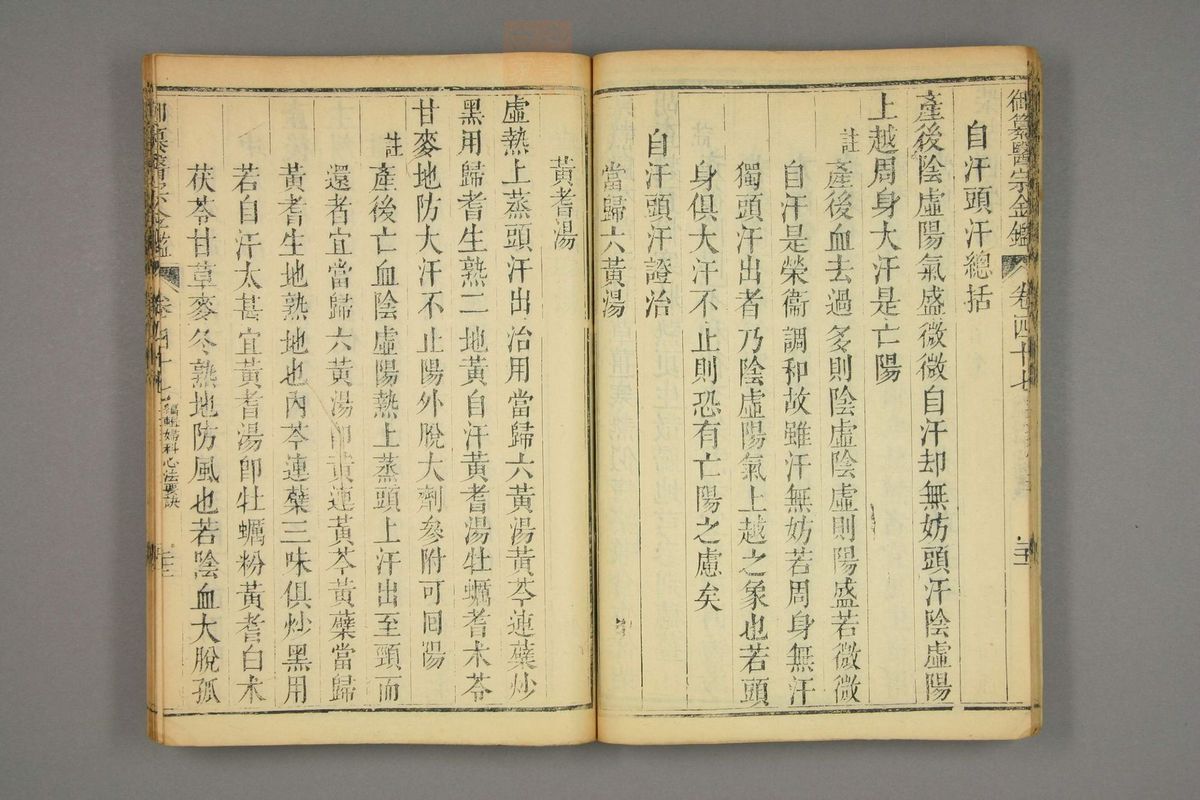 御纂醫宗金鑑 卷四十七
自汗頭汗總括
產後陰虛陽氣盛微微自汗却無妨頭汗陰虛陽
上越周身大汗是亡陽
註產後血去過多則陰虛陰虛則陽盛若微微
自汗是榮衞調和故雖汗無妨若周身無汗
獨頭汗出者乃陰虛陽氣上越之象也若頭
身俱大汗不止則恐有亡陽之慮矣
自汗頭汗證治
當歸六黃湯
黃耆湯
虛熱上蒸頭汗出治用當歸六黃湯黃芩連蘗炒
黑用歸耆生熟二地黃自汗黃耆湯牡蠣耆朮苓
甘麥地防大汗不止陽外脫大劑參附可回陽
註產後亡血陰虛陽熱上蒸頭上汗出至頸而
還者宜當歸六黃湯卽黃連黃芩黃蘗當歸
黃耆生地熟地也內芩連蘗三味俱炒黑用
若自汗太甚宜黃耆湯卽牡蠣粉黃耆白朮
茯苓甘草麥冬熟地防風也若陰血大脫孤
御纂醫宗金鑑 卷四十七 編輯婦科心法要訣